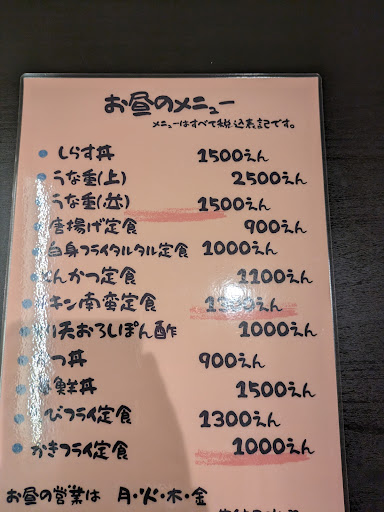 お昼のメニュー
メニューはすべて税込表記です。
しらす丼 1500えん
うな重(上) 2500えん
うな重(並) 1500えん
唐揚げ定食 900えん
白身フライタルタル定食 1000えん
んかつ定食 1100えん
キン南蛮定食 えん
天おろしぽん酢 1000えん
つ丼 900えん
鮮丼 1500えん
びフライ定食 1300えん
かきフライ定食 1000えん
お昼の営業は 月・火・木・金